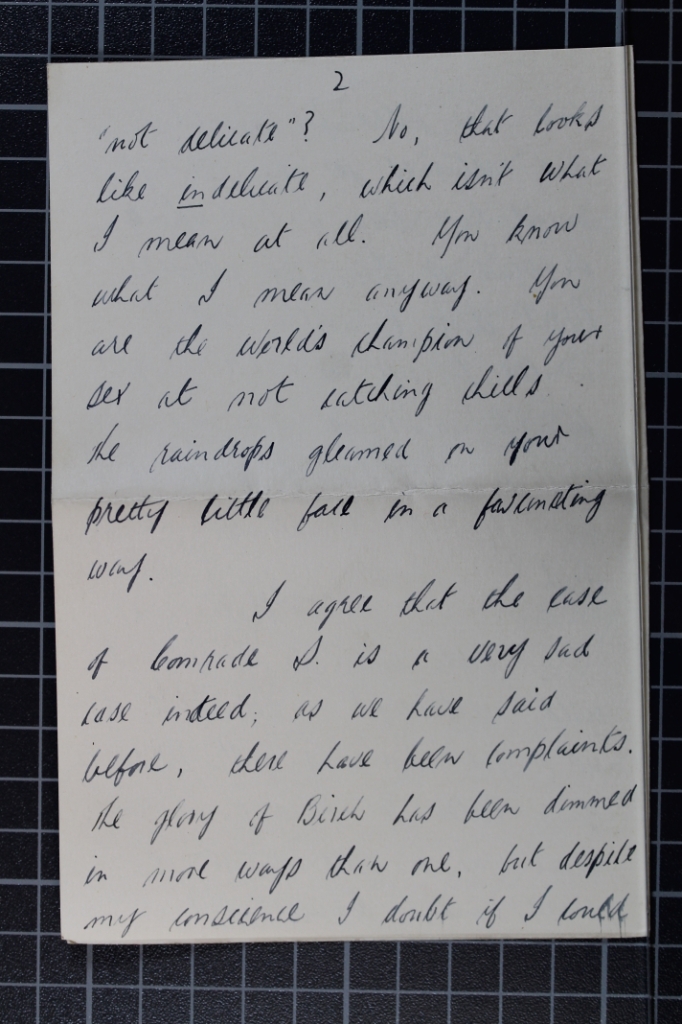 2
"not delicate"? No, that looks
like indelicate, which isn't what
I mean at all. You know
what I mean anyway. You
are the world's champion of your
sex at not catching chills.
The raindrops gleamed on your
pretty little face in a fascinating
way.
I agree that the case
of Comrade S. is a very sad
case indeed; as we have said
before, there have been complaints.
The glory of Birch has been dimmed
in more ways than one, but despite
my conscience I doubt if I could